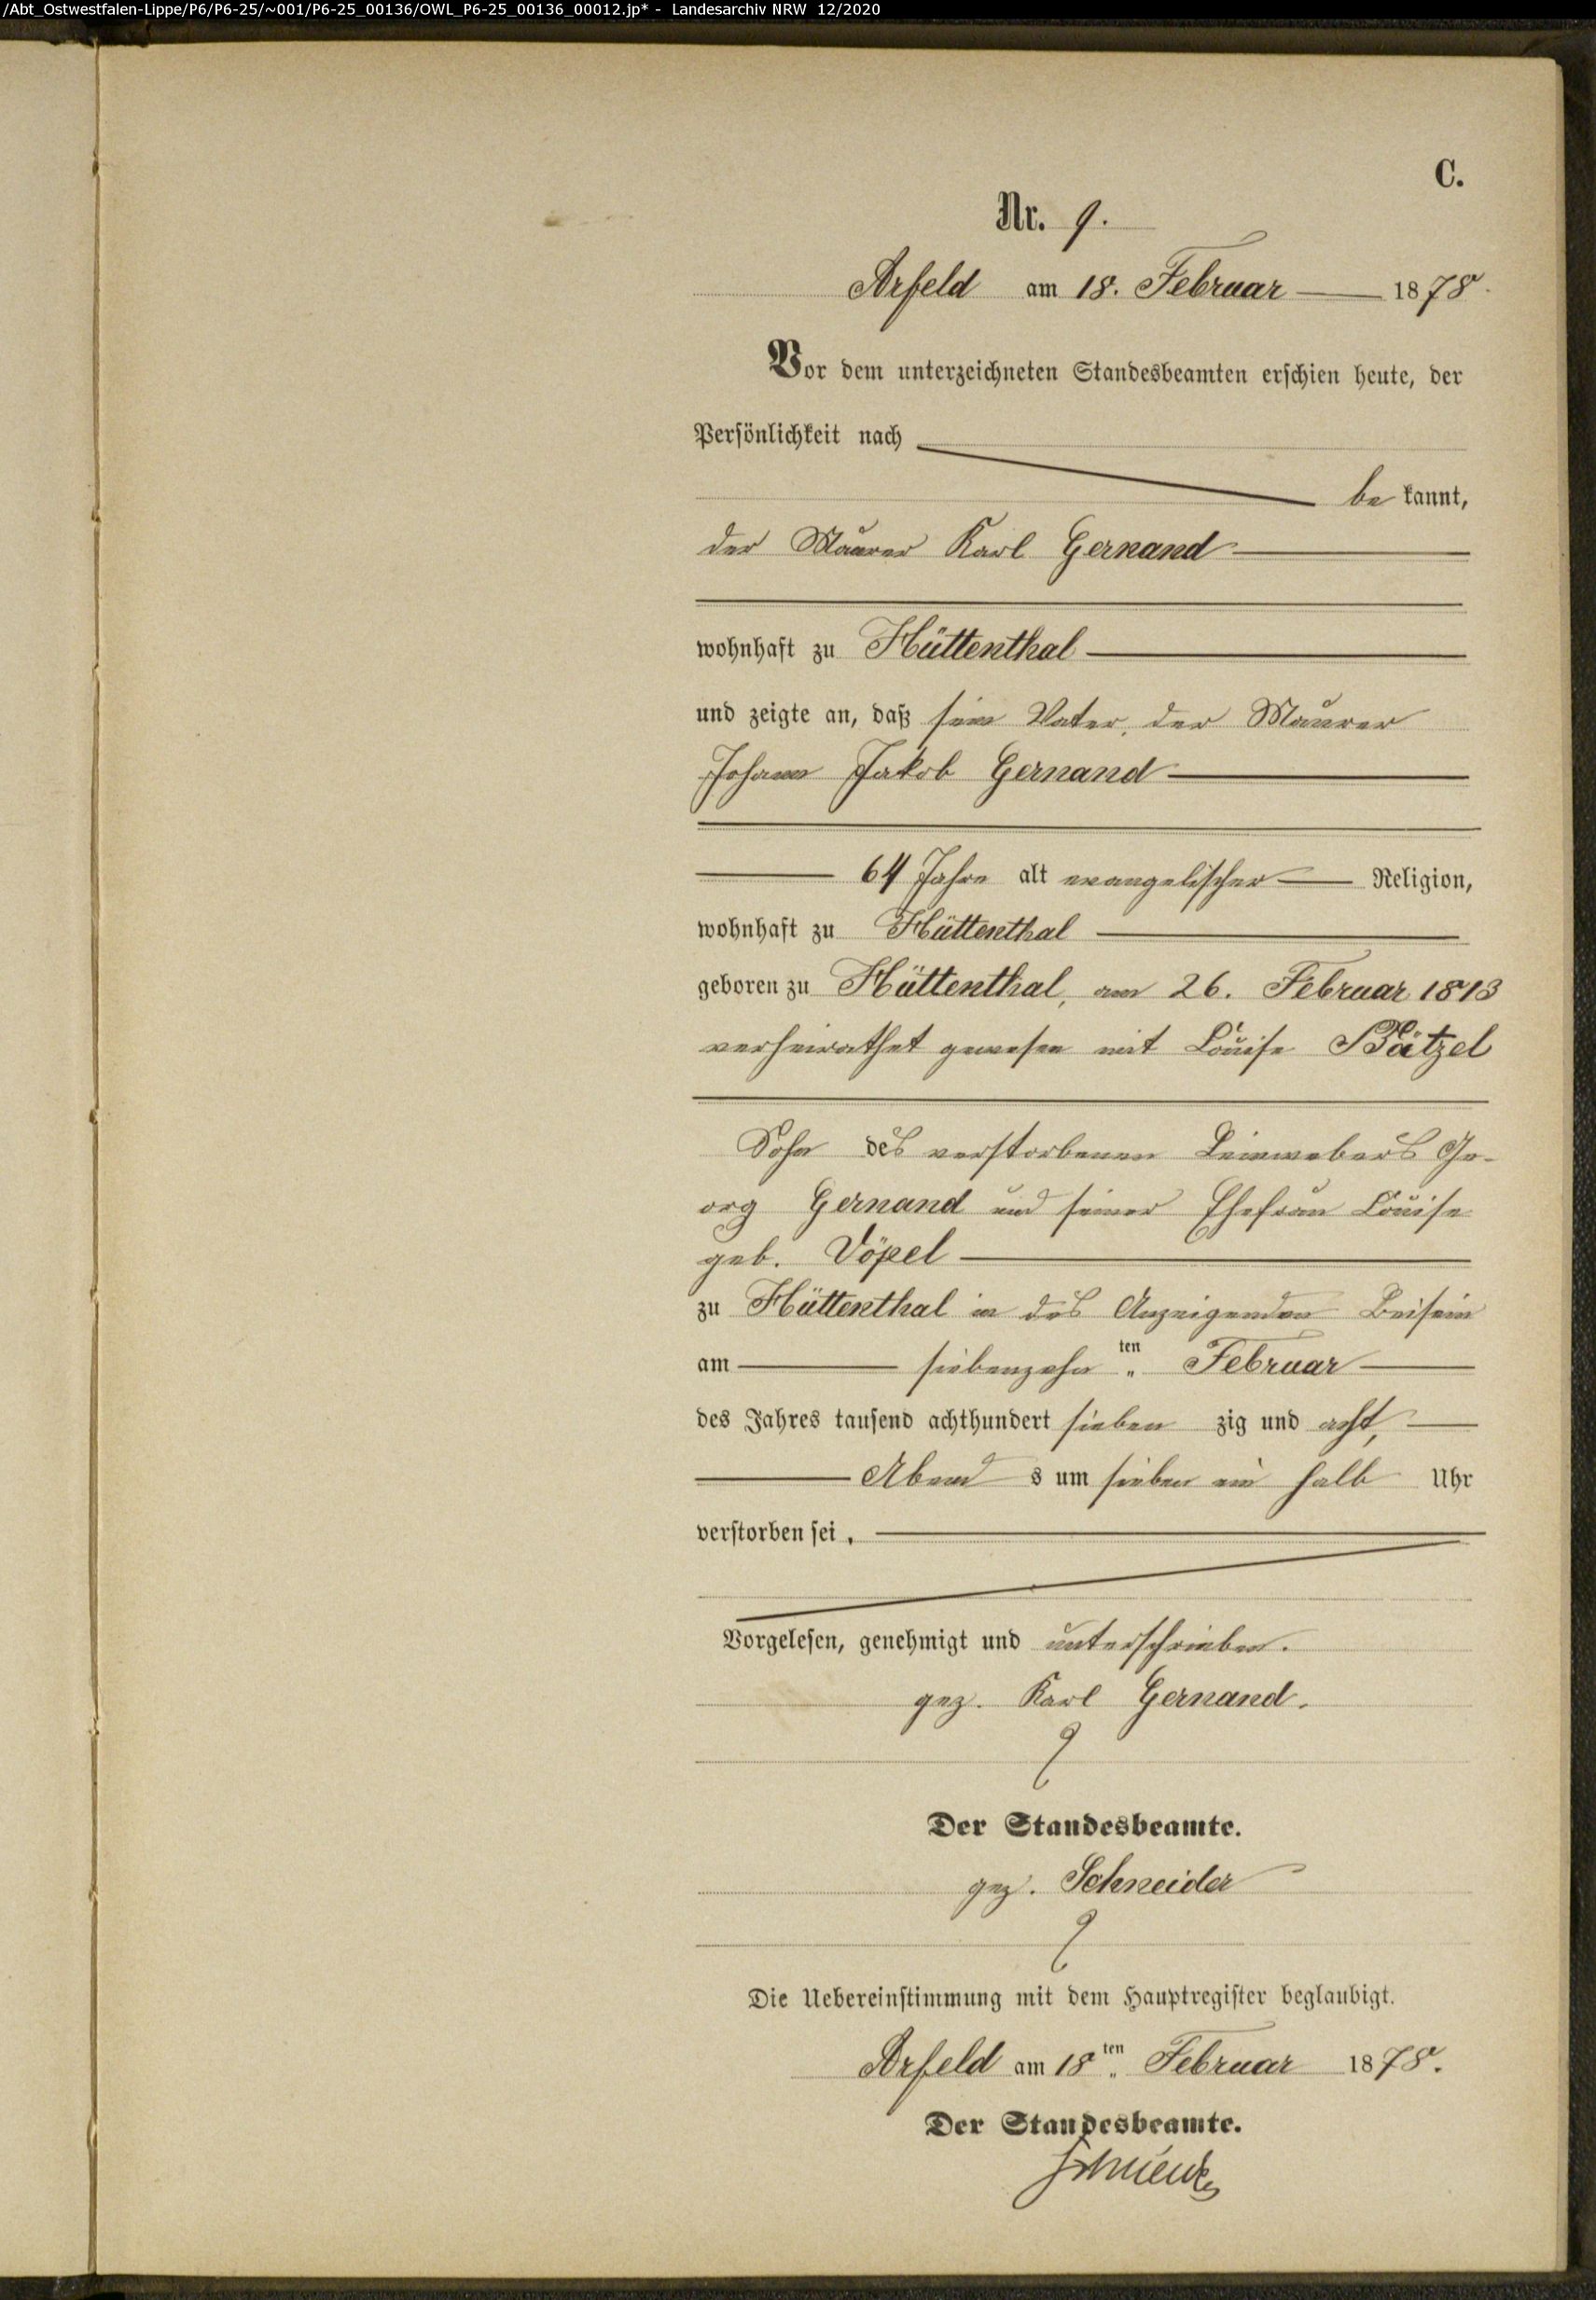 /Abt_Ostwestfalen-Lippe/P6/P6-25/~001/P6-25_00136/OWL_P6-25_00136_00012.jp* - Landesarchiv NRW 12/2020
C.
Nr. 9.
Arfeld am 18. Februar 1878
Vor dem unterzeichneten Standesbeamten erschien heute, der
Persönlichkeit nach
be kannt,
der Maurer Karl Gernand
wohnhaft zu Hüttenthal
und zeigte an, daß sein Vater, der Maurer
Johann Jakob Gernand
64 Jahre alt evangelischer Religion,
wohnhaft zu Hüttenthal
geboren zu Hüttenthal, am 26. Februar 1813
verheirathet gewesen mit Louise Bätzel
Sohn des verstorbenen Leinwebers Ge-
org Gernand und seiner Ehefrau Louise
geb. Vöpel
zu Hüttenthal in des Anzeigenden Beisein
am siebenzehn ten Februar
des Jahres tausend achthundert sieben zig und acht,
Abend s um sieben ein halb Uhr
verstorben sei.
Vorgelesen, genehmigt und unterschrieben.
gez. Karl Gernand.
Der Standesbeamte.
gez. Schneider
Die Uebereinstimmung mit dem Hauptregister beglaubigt.
Arfeld am 18ten Februar 1878.
Der Standesbeamte.
Schneider